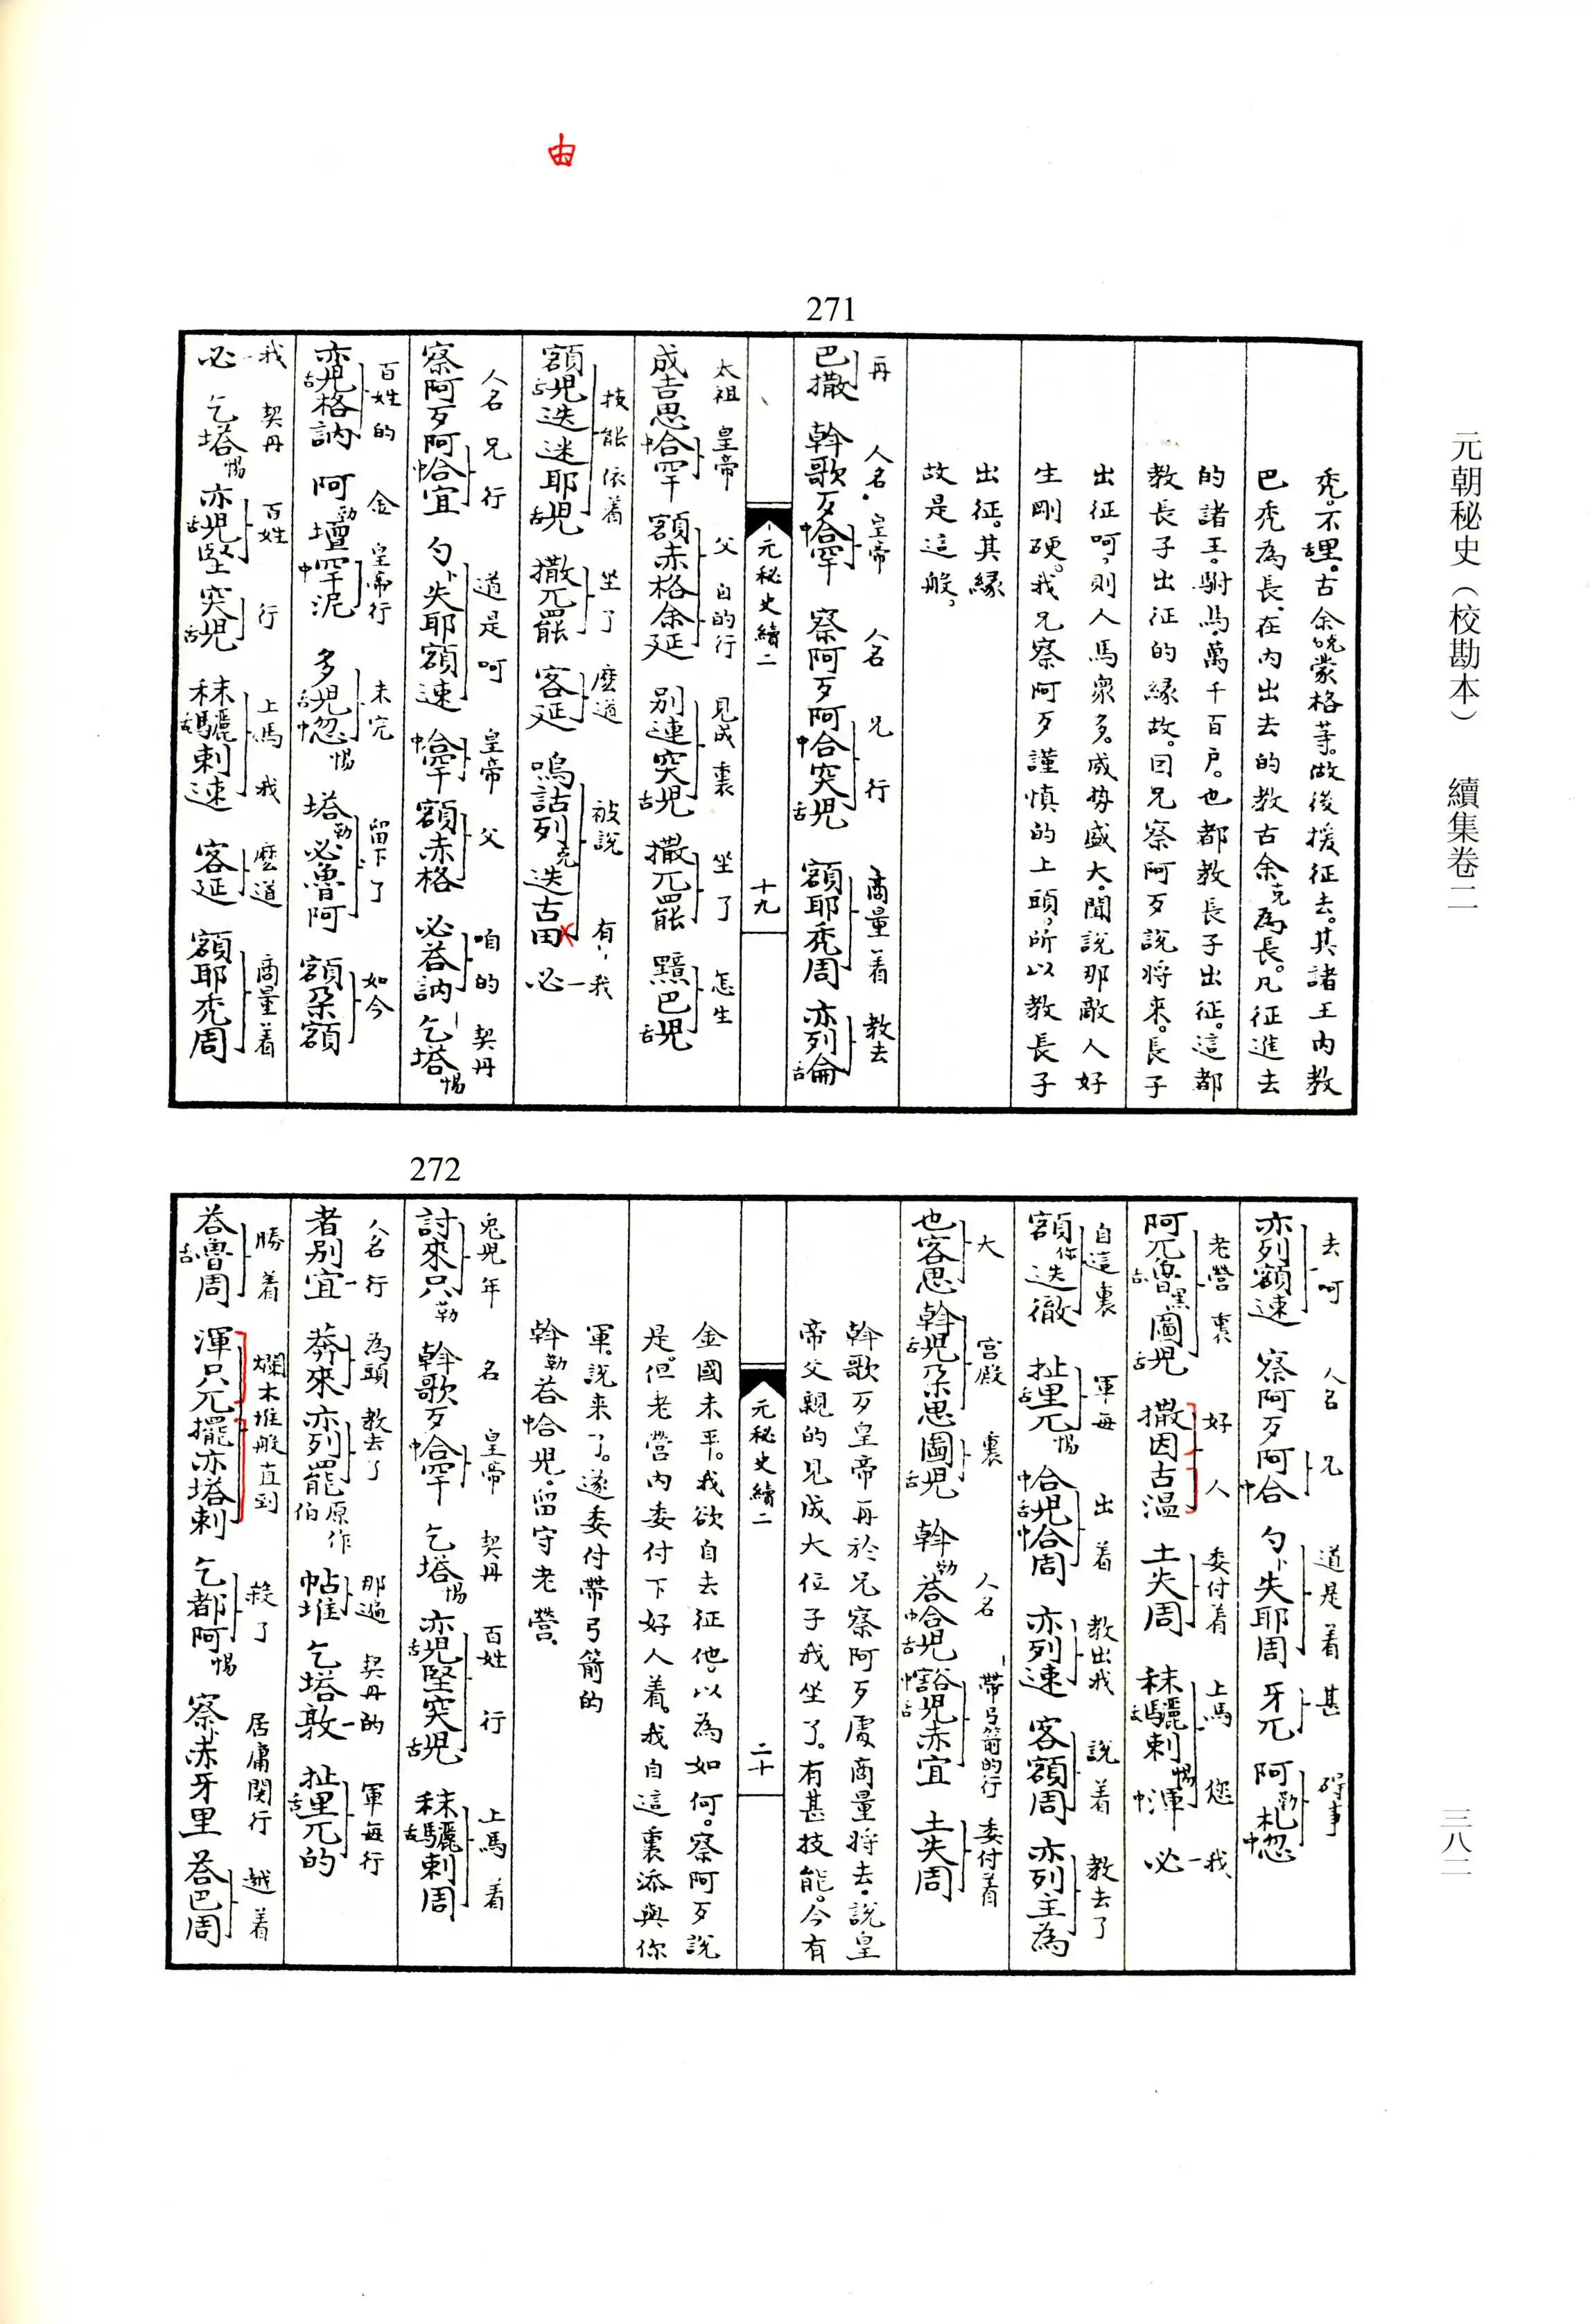 由
元朝秘史（校勘本） 續集卷二
三八二
271
禿。不舌里。古余蒙格等。做後援征去。其諸王內教
巴禿為長、在內出去的教古余克為長。凡征進去
的諸王。駙馬。萬千百戶。也都教長子出征。這都
教長子出征的緣故。因兄察阿歹說將來。長子
出征呵、則人馬眾多。威勢盛大。聞說那敵人好
生剛硬。我兄察阿歹謹慎的上頭，所以教長子
出征。其緣
故是這般，
再 人名 皇帝 人名 兄 行 商量着 教去
巴撒 斡歌歹中合罕 察阿歹阿中合突舌兒 額耶禿周 亦列舌侖
元秘史續二 十九
太祖 皇帝 父 自的行 見成裏 坐了 怎生
成吉思中合罕 額赤格余延 別連突舌兒 撒兀罷 黯巴舌兒
技能 依着 坐了 麼道 被說 有 我
額舌兒迭迷耶舌兒 撒兀罷 客延 嗚詁列克迭古田 必
人名 兄 行 道是呵 皇帝 父 咱的 契丹
察阿歹阿中合宜 勺卜失耶額速 中合罕 額赤格 必荅訥 乞塔惕
百姓的 金 皇帝行 未完 留下了 如今
亦舌兒格訥 阿勒壇中罕泥 多舌兒中忽惕 塔勒必魯阿 額朶額
我 契丹 百姓 行 上馬我 麼道 商量着
必 乞塔惕 亦舌兒堅 突舌兒 秣舌驪剌速 客延 額耶禿周
272
去呵 人名 兄 道是着 甚 碍事
亦列額速 察阿歹阿中合 勺卜失耶周 牙兀 阿勒札中忽
老營裏 好 人 委付着 上馬 您 我
阿兀舌魯黑圖舌兒 撒因古溫 土失周 秣舌驪剌惕中渾 必
自這裏 軍每 出着 教出我 說着 教去了
額你迭徹 扯舌里兀惕 中合舌兒中合周 亦列速 客額周 亦列主為
大 宮殿 裏 人名 帶弓箭的行 委付着
也客思 斡舌兒朶思圖舌兒 斡勒荅中合舌兒 中豁舌兒赤宜 土失周
斡歌歹皇帝再於兄察阿歹處商量將去。說皇
帝父親的見成大位子我坐了。有甚技能。今有
元秘史續二 二十
金國未平。我欲自去征他、以為如何。察阿歹說
是。但老營內委付下好人着。我自這裏添與你
軍。說来了。遂委付帶弓箭的
斡勒荅中合兒。留守老營、
兔兒年 名 皇帝 契丹 百姓 行 上馬着
討來只勒 斡歌歹中合罕 乞塔惕 亦舌兒堅突舌兒 秣舌驪剌周
人名行 為頭 教去了 那遍 契丹的 軍每行
者別宜 莽來 亦列罷原作伯 帖堆 乞塔敦 扯舌里兀的
勝着 爛木堆般直到 殺了 居庸関行 越着
荅舌魯周 渾只兀擺亦塔剌 乞都阿惕 察卜赤牙里 荅巴周